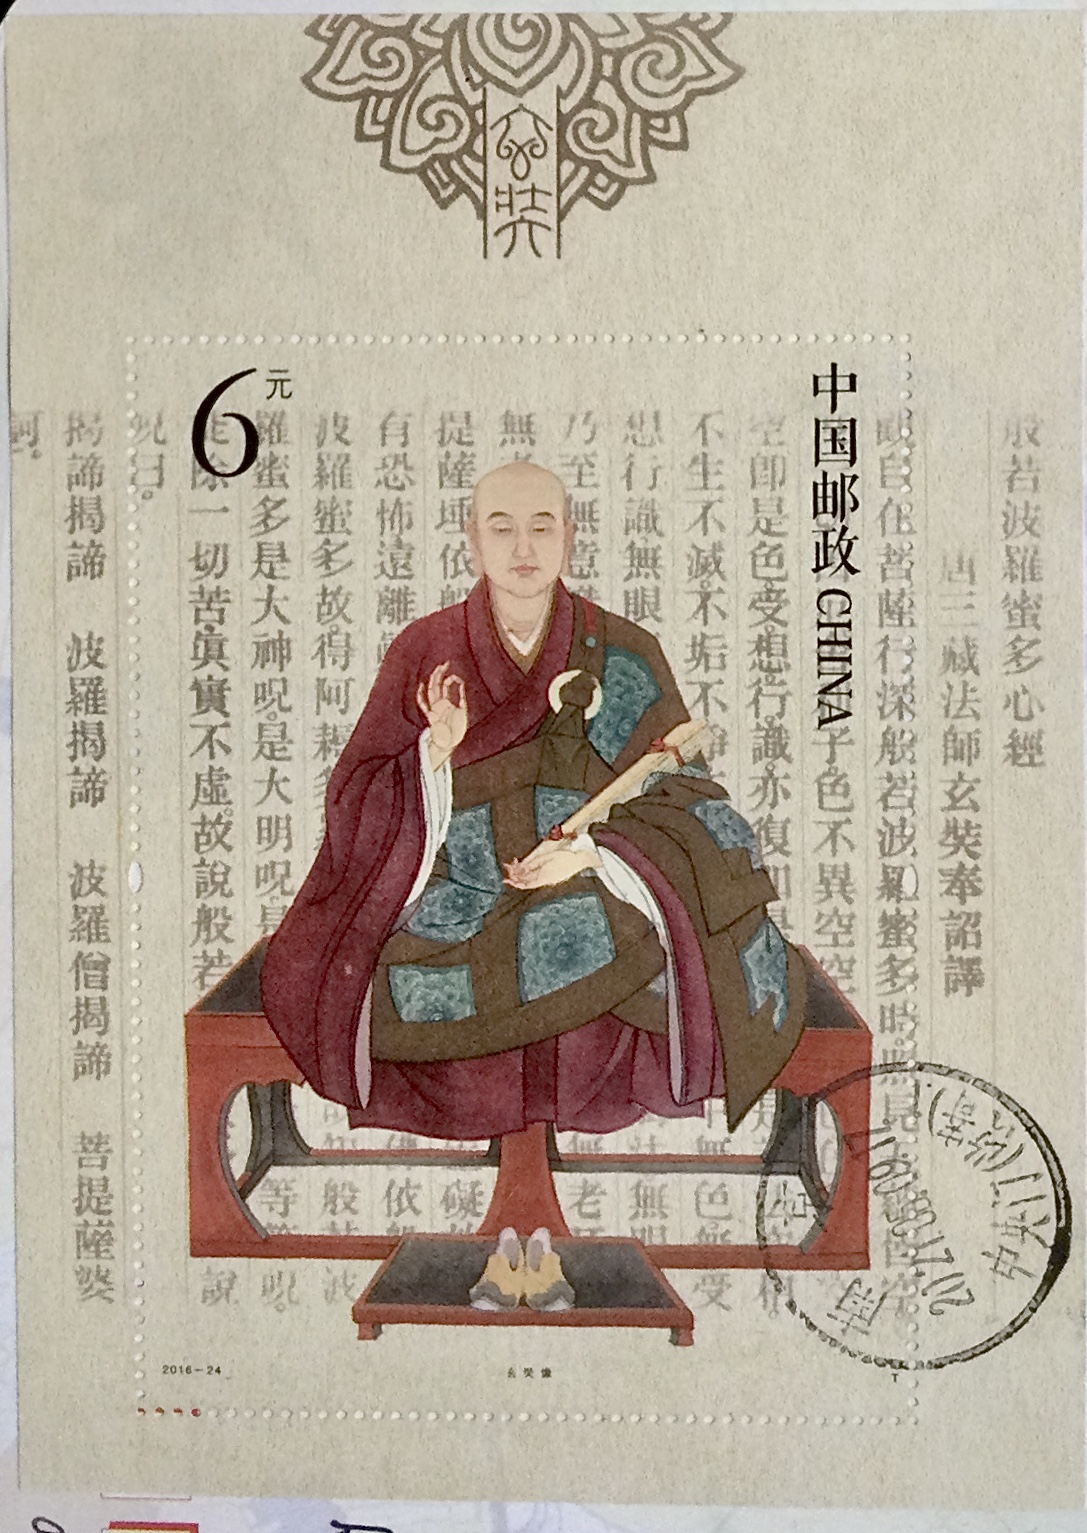 玄奘
6元
中国邮政 CHINA
般若波羅蜜多心經
唐三藏法師玄奘奉詔譯
觀自在菩薩行深般若波羅蜜多時。照見
子。色不異空空
空即是色。受想行識。亦復如是
不生不滅。不垢不淨 無色 無受
想行識無眼 法無眼
乃至無意 無老死
無老
提薩埵依般 礙故
有恐怖遠離 佛依般
波羅蜜多故得阿耨多 般若波
羅蜜多是大神呪。是大明呪。是 等等呪。
能除一切苦。真實不虛。故說般若 說
呪曰。
揭諦揭諦 波羅揭諦 波羅僧揭諦 菩提薩婆
訶。
2016-24
玄奘像
T